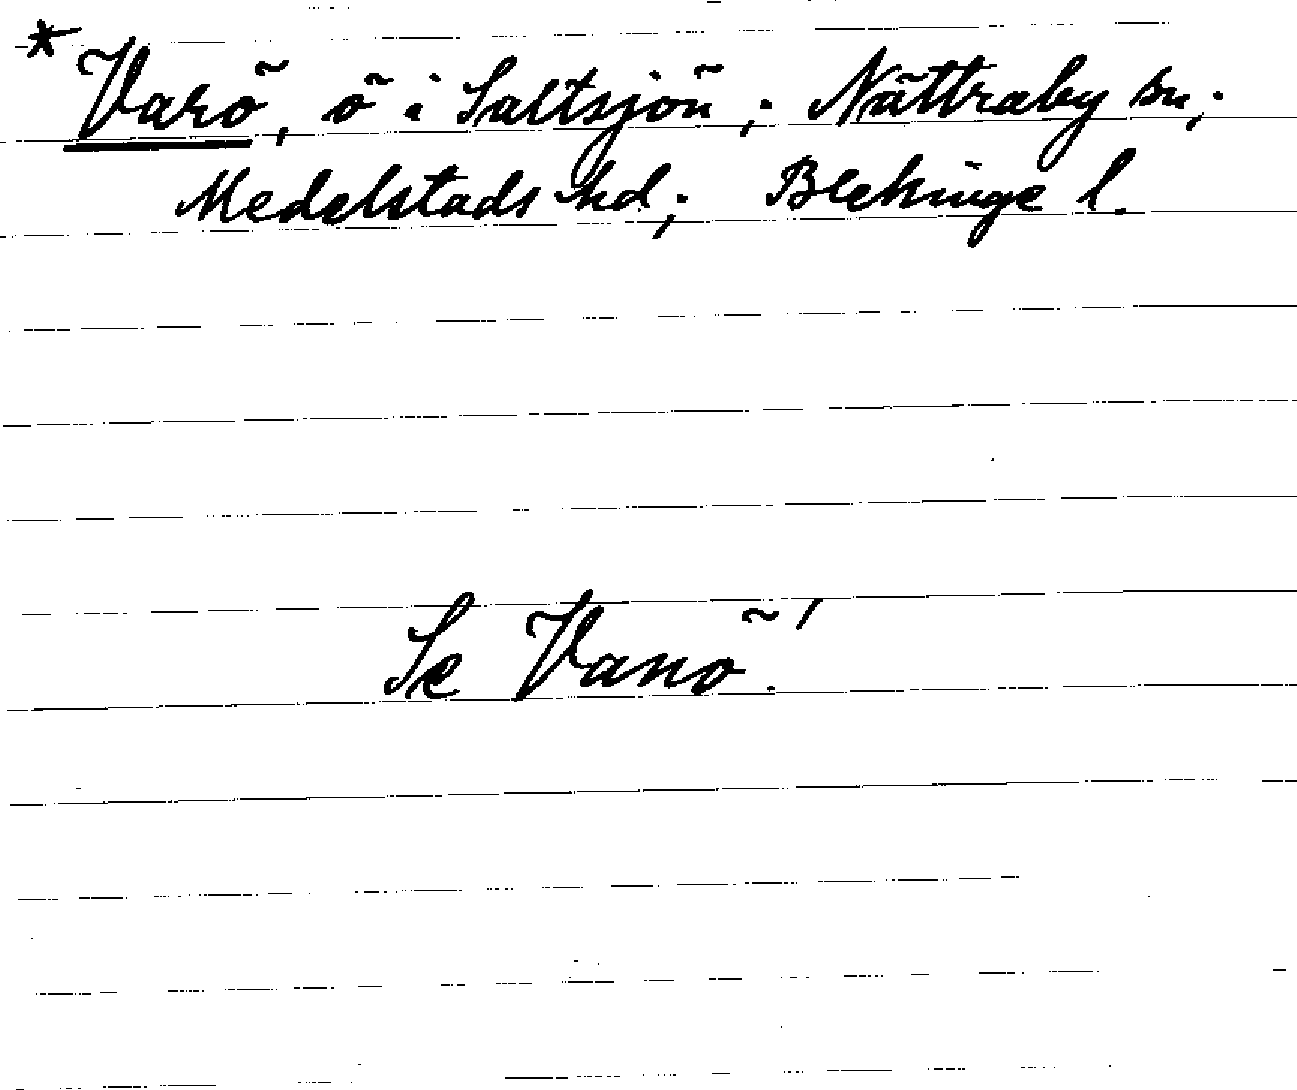 * Varö, ö i Saltsjön; Nättraby sn;
Medelstads hd; Blekinge l.
Se Vanö!